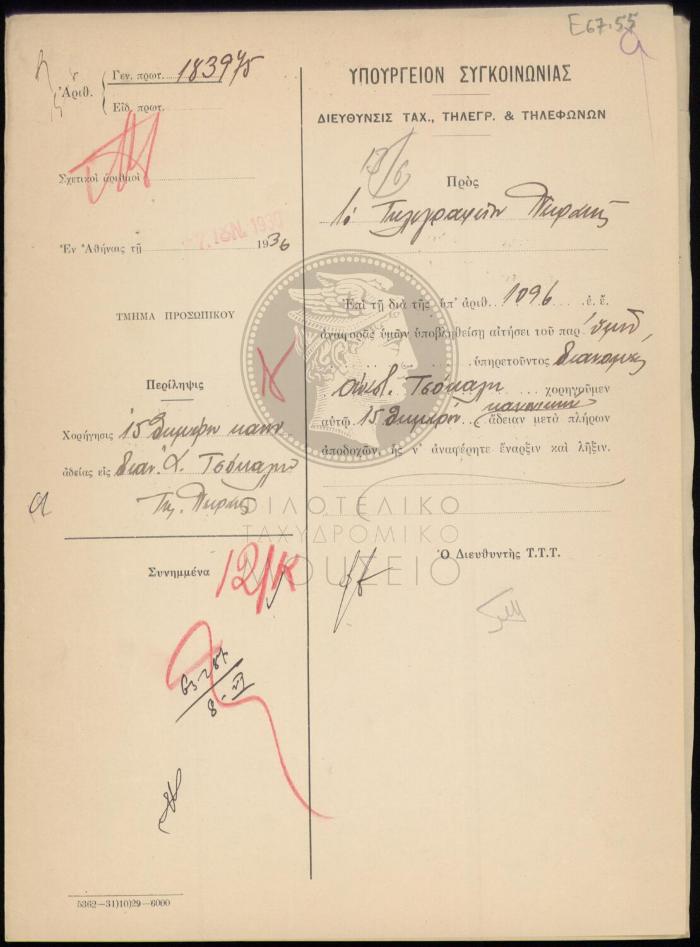 Ε67.55
Ἀριθ.
Γεν. πρωτ. 183975
Εἰδ. πρωτ.
Σχετικοὶ ἀριθμοὶ
Ἐν Ἀθήναις τῇ 1936
7. ΙΑΝ. 1937
ΤΜΗΜΑ ΠΡΟΣΩΠΙΚΟΥ
Περίληψις
Χορήγησις 15 θημέρου καν
ἀδείας εἰς διαν. Α. Τσόκαλην
Τηλ. Πειραιῶς
Συνημμένα
12/Κ
63287
8-VI
5362—31)10)29—6000
ΥΠΟΥΡΓΕΙΟΝ ΣΥΓΚΟΙΝΩΝΙΑΣ
ΔΙΕΥΘΥΝΣΙΣ ΤΑΧ., ΤΗΛΕΓΡ. & ΤΗΛΕΦΩΝΩΝ
13/6
Πρὸς
Τηλεγραφεῖον Πειραιῶς
Ἐπὶ τῇ διὰ τῆς ὑπ' ἀριθ. 1096 ἐ. ἔ.
ἀναφορᾶς ὑμῶν ὑποβληθείσῃ αἰτήσει τοῦ παρ' ὑμῖν
ὑπηρετοῦντος διανομέως
Τσόκαλη χορηγοῦμεν
αὐτῷ 15 θήμερον κανονικὴν ἄδειαν μετὰ πλήρων
ἀποδοχῶν, ἧς ν' ἀναφέρητε ἔναρξιν καὶ λῆξιν.
Ὁ Διευθυντὴς Τ.Τ.Τ.
ΦΙΛΟΤΕΛΙΚΟ
ΤΑΧΥΔΡΟΜΙΚΟ
ΜΟΥΣΕΙΟ